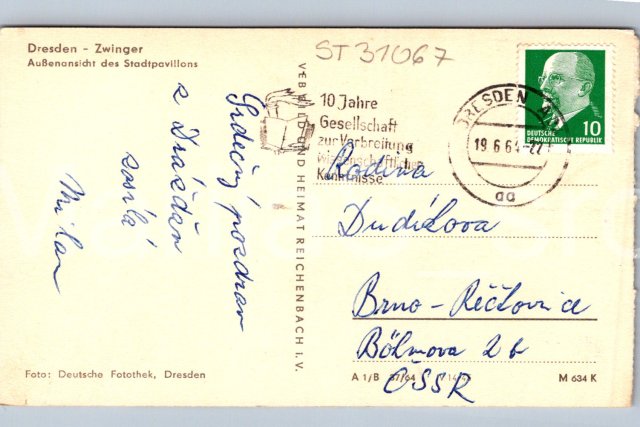 Dresden - Zwinger
Außenansicht des Stadtpavillons
ST 31067
Srdečný pozdrav
z Drážďan
zasílá
Milan
VEB BILD UND HEIMAT REICHENBACH I. V.
10 Jahre
Gesellschaft
zur Verbreitung
wissenschaftlicher
Kenntnisse
DRESDEN
19.6.64-22
aa
10
DEUTSCHE
DEMOKRATISCHE REPUBLIK
Rodina
Brno-Řečkovice
Böhmova 2b
ČSSR
Foto: Deutsche Fotothek, Dresden
A 1/B 37/64
M 634 K